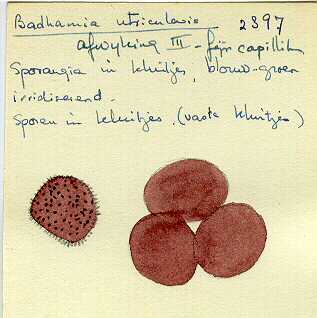 Badhamia utricularis 2397
afwyking III - fijn capillit.
Sporangia in kluitjes, blauw-groen
irridiserend.
Sporen in kluitjes. (vaste kluitjes)